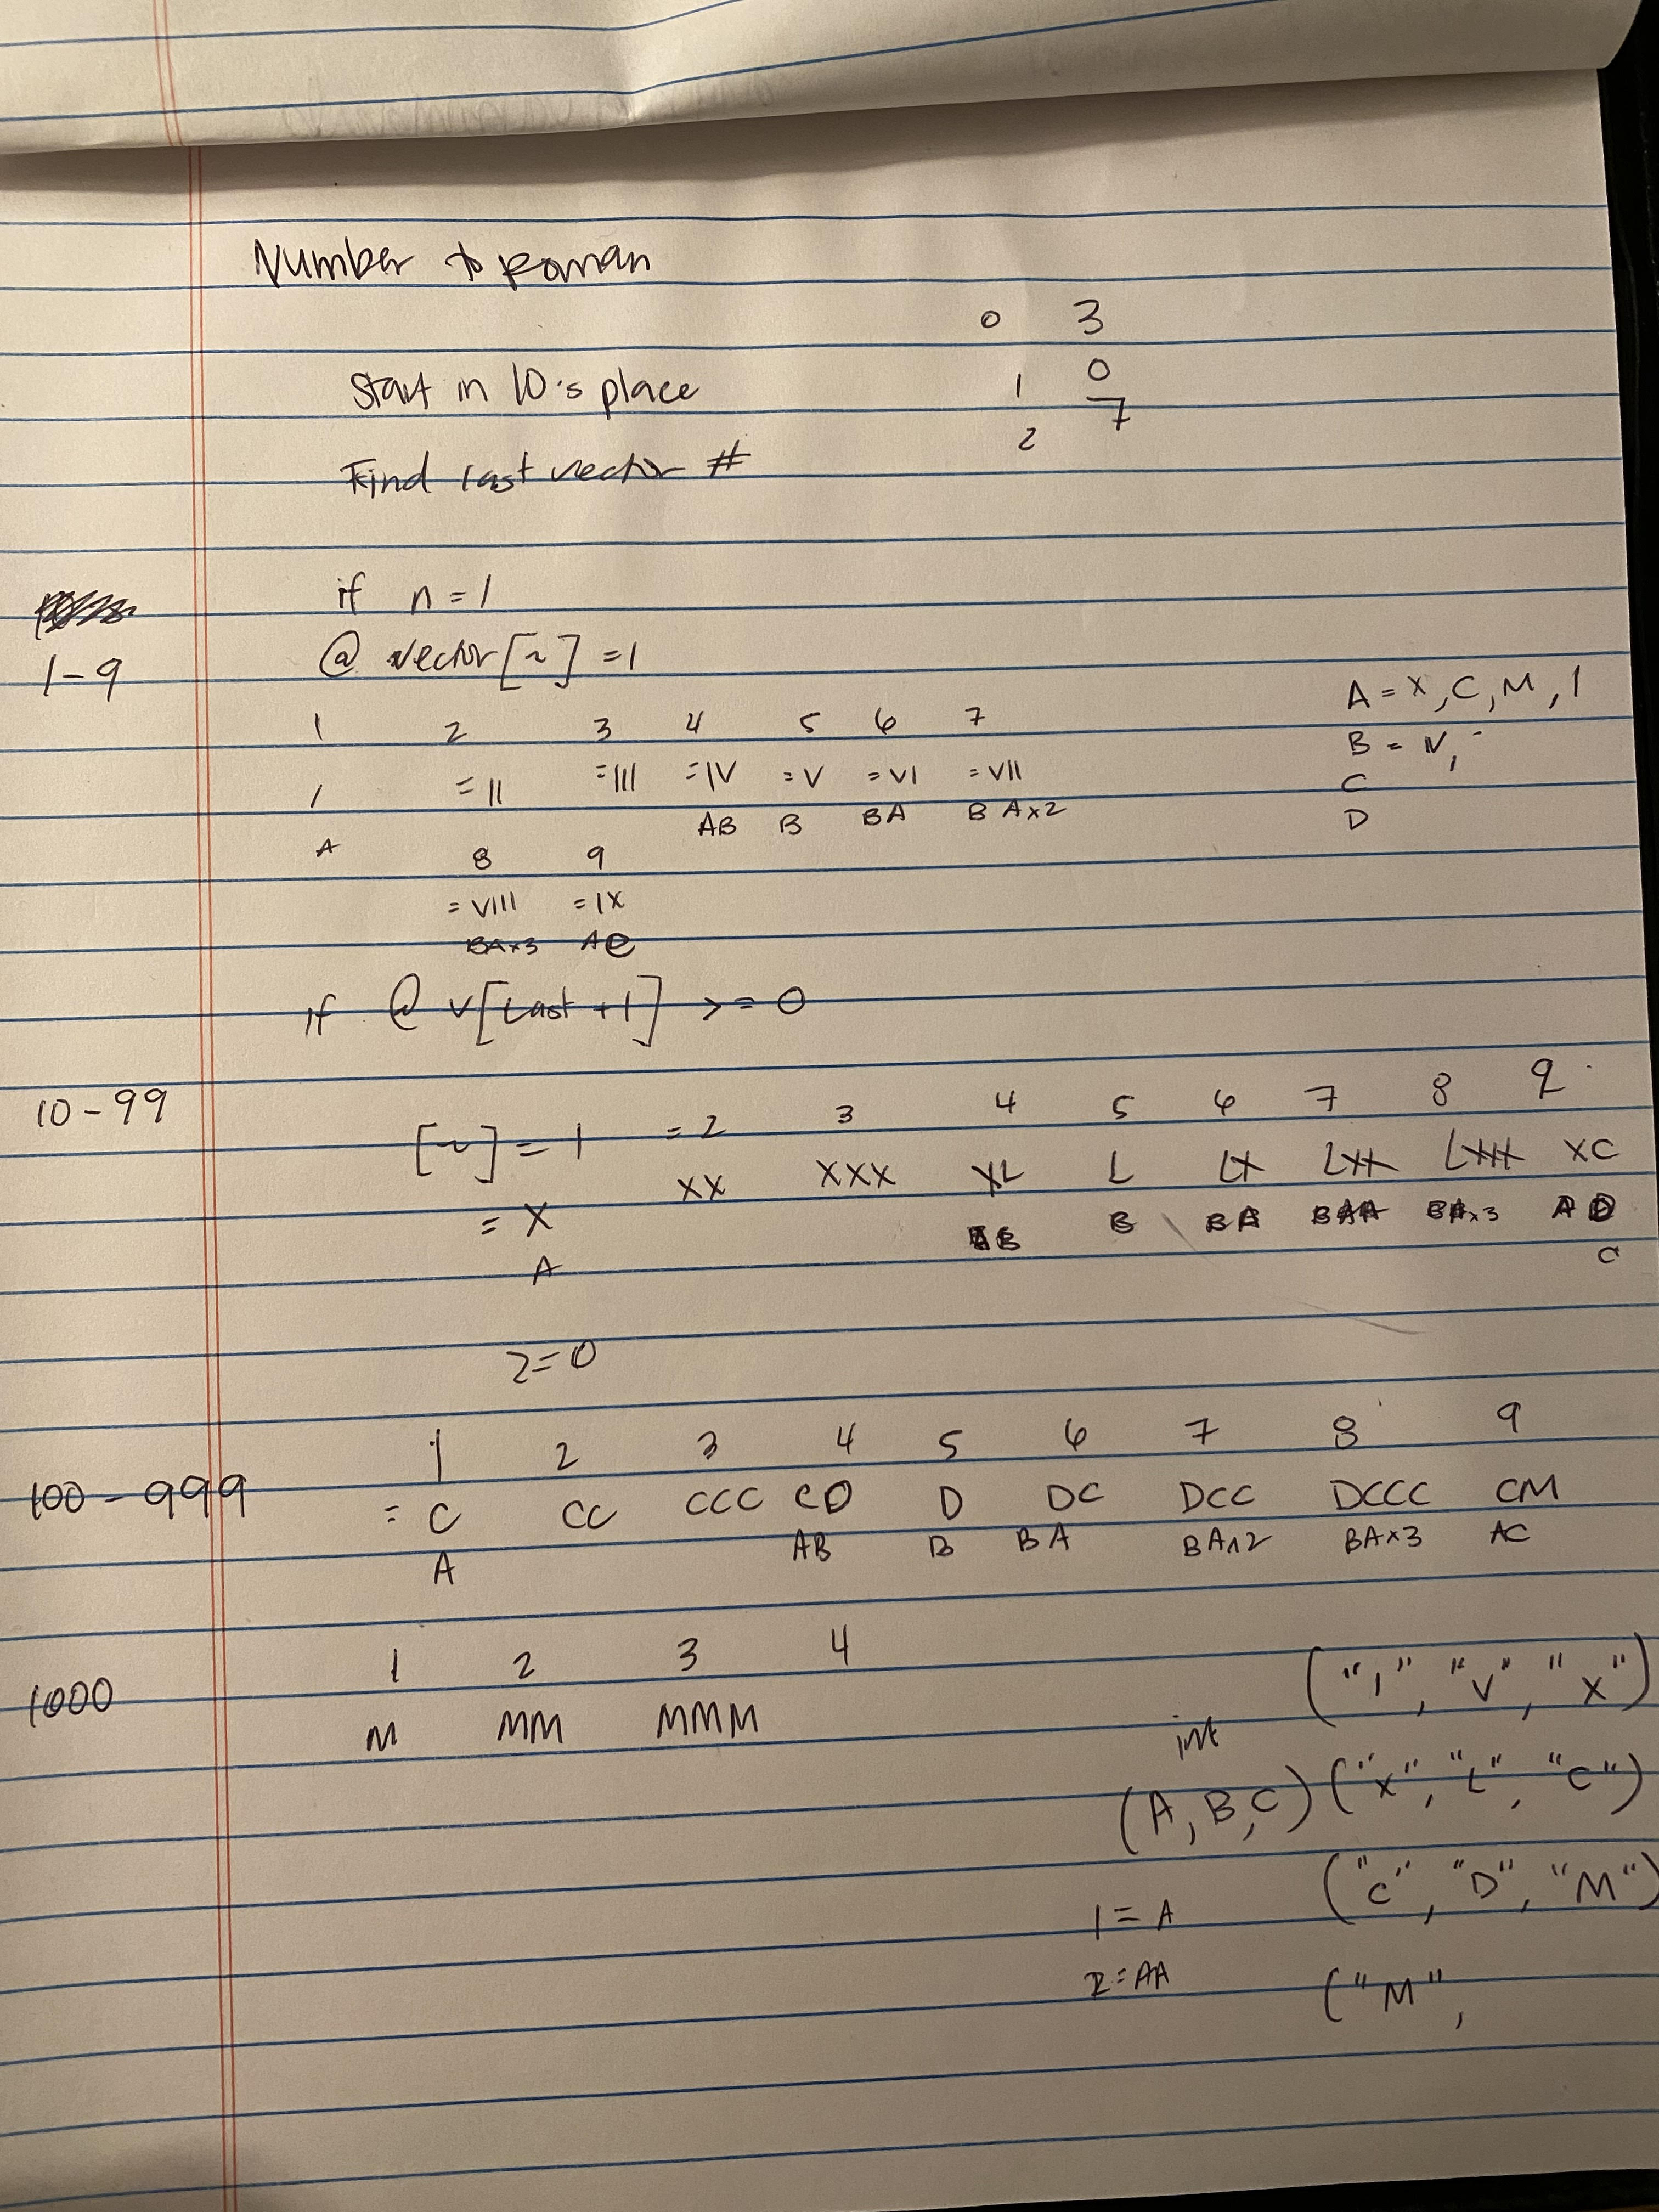 Number to Roman
0 3
Start in 10's place 1 0
2 7
Find last vector #
if n = 1
1-9 @ vector [~] = 1
A = X, C, M, I
1 2 3 4 5 6 7
B = V,
I = II = III = IV = V = VI = VII
C
A AB B BA B A x 2
D
8 9
= VIII = IX
BA x 3 AC
if @ v[Last + 1] > = 0
10-99 [~] = 1 = 2 3 4 5 6 7 8 9
= X XX XXX XL L LX LXX LXXX XC
A AB B BA BAA BA x 3 A
C
2 = 0
1 2 3 4 5 6 7 8 9
100-999 = C CC CCC CD D DC DCC DCCC CM
A AB B BA BA x 2 BA x 3 AC
1 2 3 4
1000 M MM MMM
("I", "V", "X")
int
(A, B, C) ("X", "L", "C")
("C", "D", "M")
1 = A
2 = AA
("M",